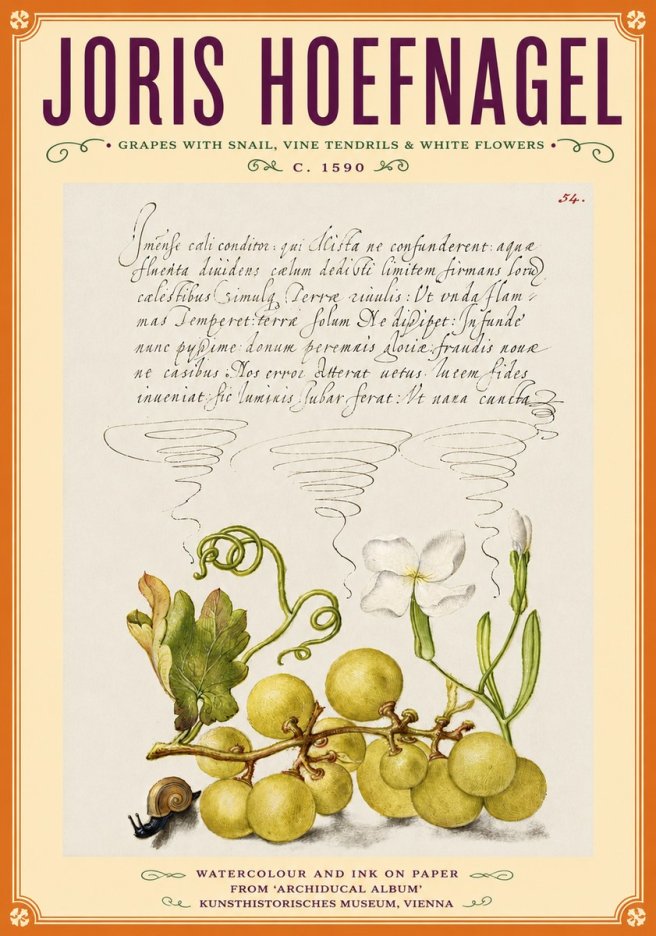 JORIS HOEFNAGEL
• GRAPES WITH SNAIL, VINE TENDRILS & WHITE FLOWERS •
C. 1590
54.
cæli conditor: qui ne confunderent: aquæ
fluenta diuidens cælum limitem firmans
cælestibus Simulq Terræ riuulis: Ut vnda flam-
mas Temperet: terræ solum Ne Infunde
nunc donum perennis gloriæ: fraudis nouæ
ne casibus Nos error Atterat uetus: lucem fides
inueniat: sic luminis Jubar ferat: Ut uana cuncta
WATERCOLOUR AND INK ON PAPER
FROM ‘ARCHIDUCAL ALBUM’
KUNSTHISTORISCHES MUSEUM, VIENNA